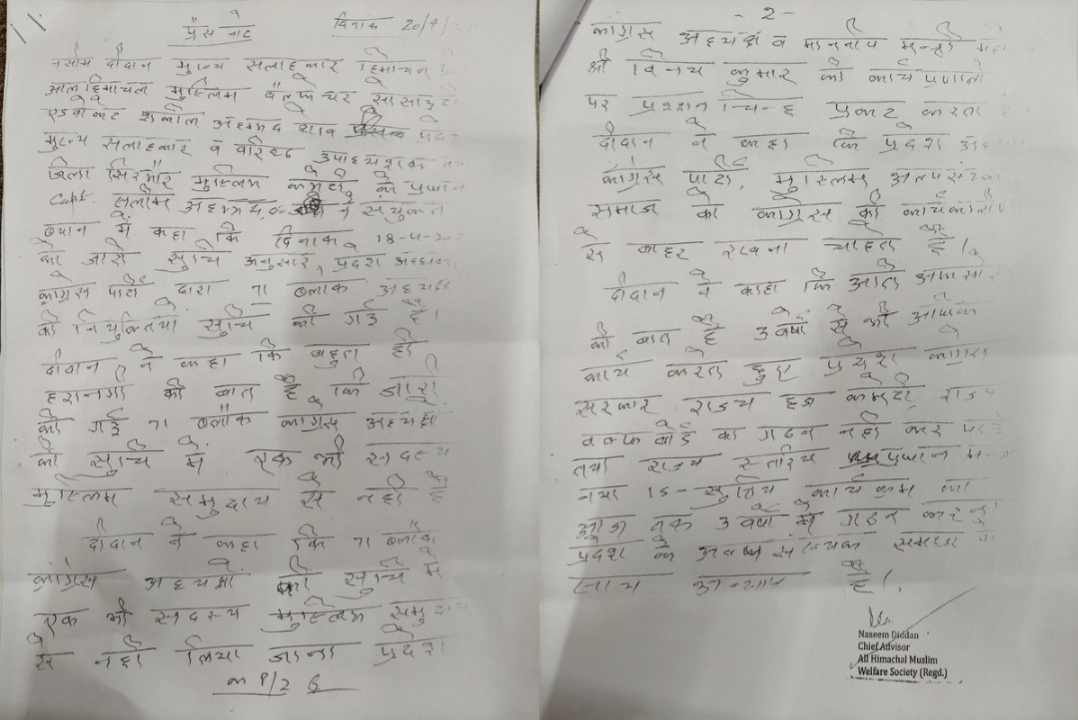 प्रैस नोट दिनांक 20/4/
नसीम दीदान मुख्य सलाहकार हिमाचल
आल हिमाचल मुस्लिम वैलफेयर सोसाइटी
एडवोकेट शकील अहमद शेख प्रदेश
मुख्य सलाहकार व वरिष्ठ उपाध्यक्ष
जिला सिरमौर मुस्लिम कमेटी के प्रधान
Capt. सलीम अहमद ने संयुक्त
ब्यान में कहा कि दिनांक 18-4-
को जारी सुचि अनुसार प्रदेश अध्यक्ष
कांग्रेस पार्टी द्वारा 71 ब्लाक अध्यक्षों
की नियुक्तियां सुचि की गई है।
दीदान ने कहा कि बहुत ही
हरानगी की बात है कि जारी
की गई 71 ब्लॉक कांग्रेस अध्यक्षों
की सुचि में एक भी सदस्य
मुस्लिम समुदाय से नही है
दीदान ने कहा कि 71 ब्लॉक
कांग्रेस अध्यक्षों की सुचि में
एक भी सदस्य मुस्लिम समुदाय
से नही लिया जाना प्रदेश
P/2
- 2 -
कांग्रेस अध्यक्ष व माननीय मन्त्री
श्री विनय कुमार की कार्य प्रणाली
पर प्रश्न चिन्ह प्रकट करता
दीदान ने कहा कि प्रदेश
कांग्रेस पार्टी, मुस्लिम अल्पसंख्यक
समाज को कांग्रेस की कार्यकारिणी
से बाहर रखना चाहता है।
दीदान ने कहा कि अति
की बात है 3 वर्षों से भी अधिक
कार्य करते हुए प्रदेश कांग्रेस
सरकार राज्य हज कमेटी, राज्य
वक्फ बोर्ड का गठन नही कर
तथा राज्य स्तरिय प्रधान
नया 15-सुत्रिय कार्यक्रम का
आज तक 3 वर्षों में गठन
प्रदेश के अल्पसंख्यक समाज के
साथ अन्याय है।
Naseem Diddan
Chief Advisor
All Himachal Muslim
Welfare Society (Regd.)